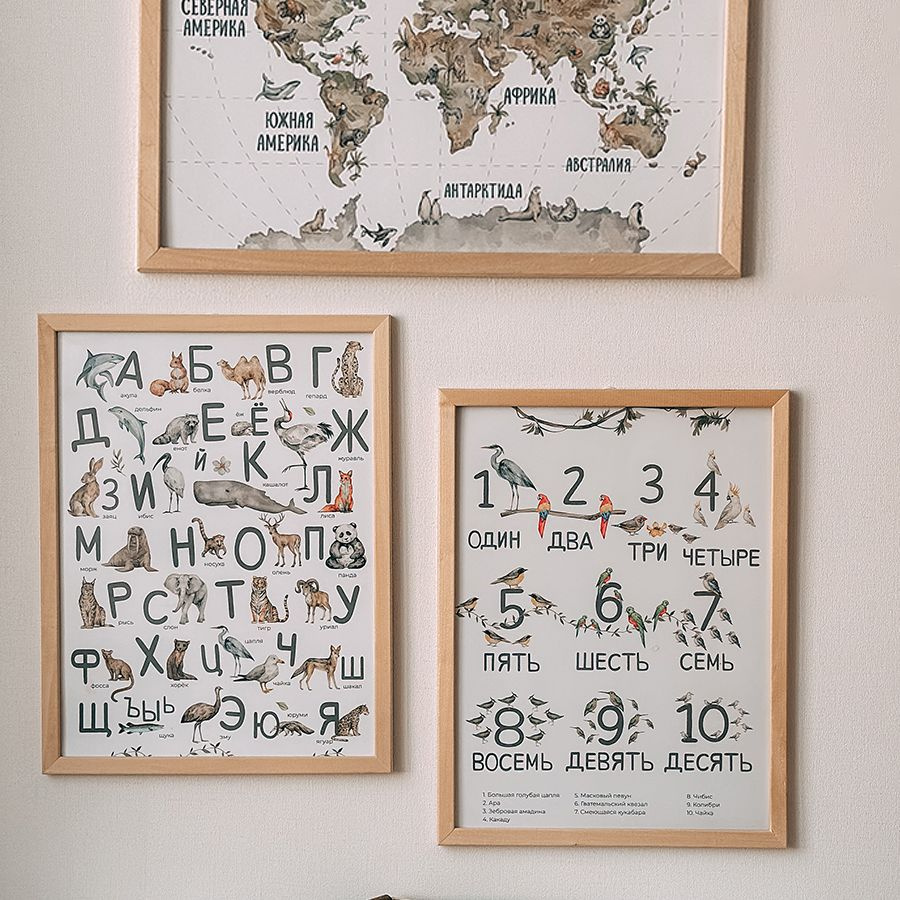 СЕВЕРНАЯ
АМЕРИКА
ЮЖНАЯ
АМЕРИКА
АФРИКА
АВСТРАЛИЯ
АНТАРКТИДА
А Б В Г
акула белка верблюд гепард
Д Е Ё Ж
дельфин енот ёж журавль
З И Й К Л
заяц ибис кашалот лиса
М Н О П
морж носуха олень панда
Р С Т У
рысь слон тигр уриал
Ф Х Ц Ч Ш
фосса хорёк цапля чайка шакал
Щ Ъ Ы Ь Э Ю Я
щука эму юруми ягуар
1 2 3 4
ОДИН ДВА ТРИ ЧЕТЫРЕ
5 6 7
ПЯТЬ ШЕСТЬ СЕМЬ
8 9 10
ВОСЕМЬ ДЕВЯТЬ ДЕСЯТЬ
1. Большая голубая цапля
2. Ара
3. Зебровая амадина
4. Какаду
5. Масковый певун
6. Гватемальский квезал
7. Смеющаяся кукабара
8. Чибис
9. Колибри
10. Чайка